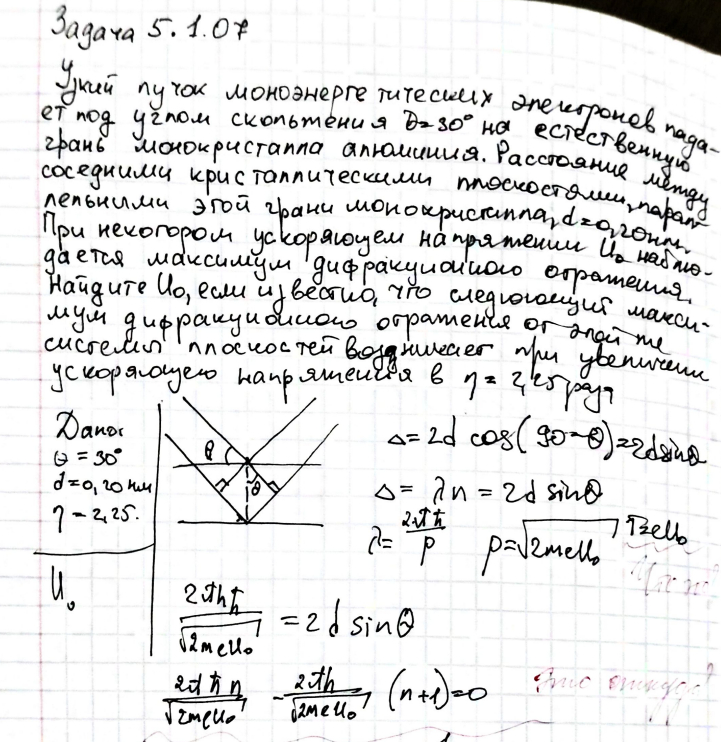 Задача 5.1.07
Узкий пучок моноэнергетических электронов пада-
ет под углом скольжения θ=30° на естественную
грань монокристалла алюминия. Расстояние между
соседними кристаллическими плоскостями, парал-
лельными этой грани монокристалла, d=0,20нм.
При некотором ускоряющем напряжении U₀ наблю-
дается максимум дифракционного отражения.
Найдите U₀, если известно, что следующий макси-
мум дифракционного отражения от этой же
системы плоскостей возникает при увеличении
ускоряющего напряжения в η=2,25 раза
Дано:
θ=30°
d=0,20нм
η=2,25.
U₀
θ
θ
Δ=2d cos(90-θ)=2dsinθ
Δ= λn = 2d sinθ
λ= 2πħ/p p=√2meU₀ T=eU₀
2πħn/√2meU₀ = 2d sinθ
2πħn/√2meU₀ - 2πħ/√2meU₀ (n+1)=0
Это откуда?